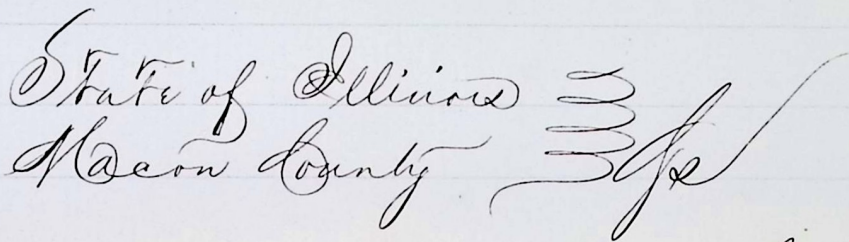 State of Illinois
Macon County } ss